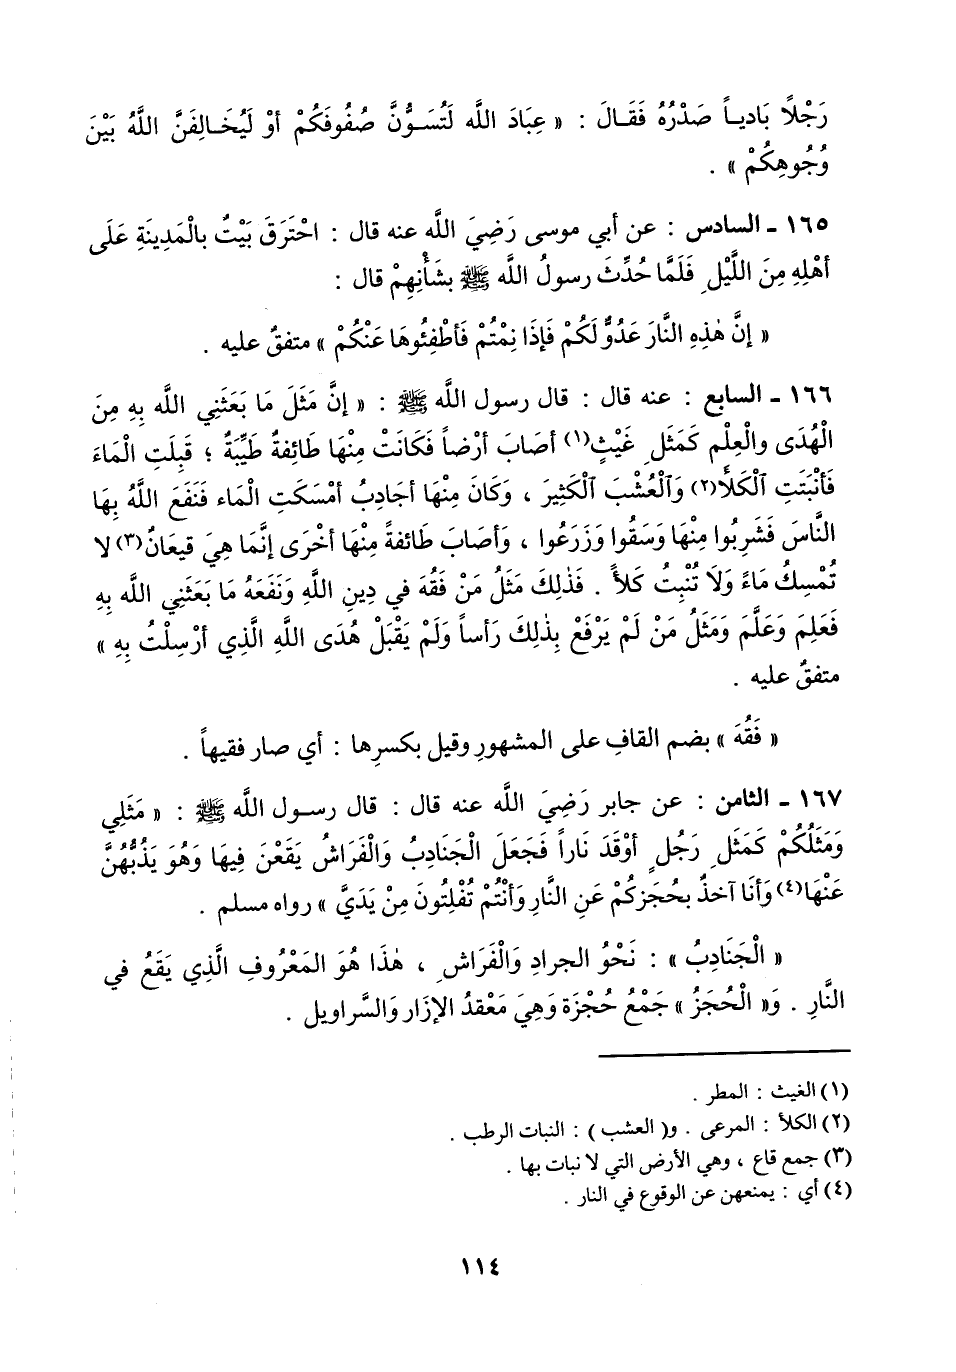 رَجُلاً بَادِياً صَدْرُهُ فَقَالَ : « عِبَادَ اللَّه لَتُسَوُّنَّ صُفُوفَكُمْ أوْ لَيُخَالِفَنَّ اللَّهُ بَيْنَ
وُجُوهِكُمْ » .
١٦٥ ـ السادس : عن أبي موسى رَضِيَ اللَّه عنه قال : احْتَرَقَ بَيْتٌ بالْمَدِينَةِ عَلَى
أهْلِهِ مِنَ اللَّيْلِ فَلَمَّا حُدِّثَ رسولُ اللَّه ﷺ بشَأْنِهِمْ قال :
« إنَّ هٰذِهِ النَّارَ عَدُوٌّ لَكُمْ فَإذَا نِمْتُمْ فَأطْفِئُوهَا عَنْكُمْ » متفقٌ عليه .
١٦٦ ـ السابع : عنه قال : قال رسول اللَّه ﷺ : « إنَّ مَثَلَ مَا بَعَثَنِي اللَّه بِهِ مِنَ
الْهُدَى والْعِلْمِ كَمَثَلِ غَيْثٍ(١) أصَابَ أرْضاً فَكَانَتْ مِنْهَا طَائِفةٌ طَيِّبَةٌ ؛ قَبِلَتِ الْمَاءَ
فَأنْبَتَتِ ٱلْكَلأَ(٢) وَٱلْعُشْبَ ٱلْكَثِيرَ ، وَكَانَ مِنْهَا أجَادِبُ أمْسَكَتِ الْمَاء فَنَفَعَ اللَّهُ بِهَا
النَّاسَ فَشَرِبُوا مِنْهَا وَسَقُوا وَزَرَعُوا ، وَأصَابَ طَائفةً مِنْهَا أخْرَى إنَّمَا هِيَ قيعَانٌ(٣) لا
تُمْسِكُ مَاءً وَلَا تُنْبِتُ كَلأً . فَذٰلِكَ مَثَلُ مَنْ فَقُهَ في دِينِ اللَّهِ وَنَفَعَهُ مَا بَعَثَنِي اللَّه بِهِ
فَعَلِمَ وَعَلَّمَ وَمَثَلُ مَنْ لَمْ يَرْفَعْ بِذٰلِكَ رَأساً وَلَمْ يَقْبَلْ هُدَى اللَّهِ الَّذِي أرْسِلْتُ بِهِ »
متفقٌ عليه .
« فَقُهَ » بضم القافِ على المشهورِ وقيل بكسرِها : أي صار فقيهاً .
١٦٧ ـ الثامن : عن جابر رَضِيَ اللَّه عنه قال : قال رسول اللَّه ﷺ : « مَثَلِي
وَمَثَلُكُمْ كَمَثَلِ رَجُلٍ أوْقَدَ نَاراً فَجَعَلَ الْجَنَادِبُ وَالْفَرَاشُ يَقَعْنَ فِيهَا وَهُوَ يَذُبُّهُنَّ
عَنْهَا(٤) وَأنَا آخذٌ بحُجَزِكُمْ عَنِ النَّارِ وَأنْتُمْ تُفْلِتُونَ مِنْ يَدَيَّ » رواه مسلم .
« الْجَنَادِبُ » : نَحْوُ الجرادِ وَالْفَرَاشِ ، هٰذَا هُوَ المَعْرُوف الَّذِي يَقَعُ في
النَّارِ . وَ« الْحُجَزُ » جَمْعُ حُجْزَة وَهِيَ مَعْقدُ الإزَار وَالسَّراويل .
(١) الغيث : المطر .
(٢) الكلأ : المرعى . و( العشب ) : النبات الرطب .
(٣) جمع قاع ، وهي الأرض التي لا نبات بها .
(٤) أي : يمنعهن عن الوقوع في النار .
١١٤